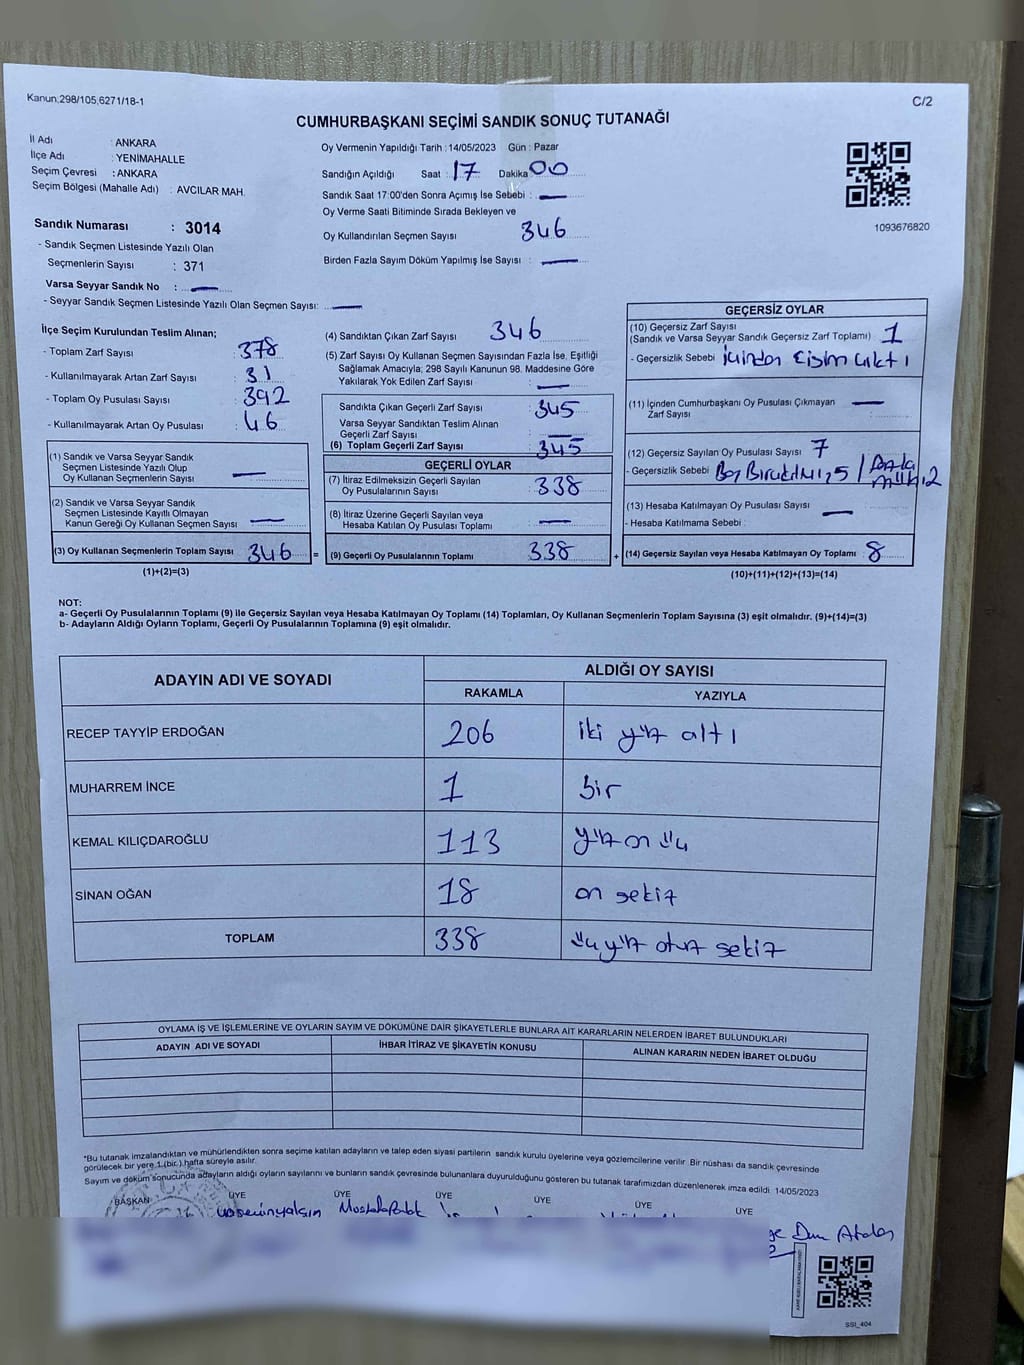 Kanun,298/105,6271/18-1
C/2
CUMHURBAŞKANI SEÇİMİ SANDIK SONUÇ TUTANAĞI
İl Adı : ANKARA
İlçe Adı : YENİMAHALLE
Seçim Çevresi : ANKARA
Seçim Bölgesi (Mahalle Adı) : AVCILAR MAH.
Oy Vermenin Yapıldığı Tarih : 14/05/2023 Gün : Pazar
Sandığın Açıldığı Saat : 17 Dakika 00
Sandık Saat 17:00'den Sonra Açımış İse Sebebi : —
Oy Verme Saati Bitiminde Sırada Bekleyen ve
Oy Kullandırılan Seçmen Sayısı 346
Birden Fazla Sayım Döküm Yapılmış İse Sayısı : —
1093676820
Sandık Numarası : 3014
- Sandık Seçmen Listesinde Yazılı Olan
Seçmenlerin Sayısı : 371
Varsa Seyyar Sandık No : —
- Seyyar Sandık Seçmen Listesinde Yazılı Olan Seçmen Sayısı: —
İlçe Seçim Kurulundan Teslim Alınan;
- Toplam Zarf Sayısı : 378
- Kullanılmayarak Artan Zarf Sayısı : 31
- Toplam Oy Pusulası Sayısı : 392
- Kullanılmayarak Artan Oy Pusulası : 46
(1) Sandık ve Varsa Seyyar Sandık
Seçmen Listesinde Yazılı Olup
Oy Kullanan Seçmenlerin Sayısı —
(2) Sandık ve Varsa Seyyar Sandık
Seçmen Listesinde Kayıtlı Olmayan
Kanun Gereği Oy Kullanan Seçmen Sayısı —
(3) Oy Kullanan Seçmenlerin Toplam Sayısı 346 =
(1)+(2)=(3)
(4) Sandıktan Çıkan Zarf Sayısı 346
(5) Zarf Sayısı Oy Kullanan Seçmen Sayısından Fazla İse, Eşitliği
Sağlamak Amacıyla; 298 Sayılı Kanunun 98. Maddesine Göre
Yakılarak Yok Edilen Zarf Sayısı : —
Sandıkta Çıkan Geçerli Zarf Sayısı 345
Varsa Seyyar Sandıktan Teslim Alınan
Geçerli Zarf Sayısı —
(6) Toplam Geçerli Zarf Sayısı 345
GEÇERLİ OYLAR
(7) İtiraz Edilmeksizin Geçerli Sayılan
Oy Pusulalarının Sayısı 338
(8) İtiraz Üzerine Geçerli Sayılan veya
Hesaba Katılan Oy Pusulası Toplamı —
(9) Geçerli Oy Pusulalarının Toplamı 338 +
GEÇERSİZ OYLAR
(10) Geçersiz Zarf Sayısı
(Sandık ve Varsa Seyyar Sandık Geçersiz Zarf Toplamı) 1
- Geçersizlik Sebebi içinden cisim çıktı
(11) İçinden Cumhurbaşkanı Oy Pusulası Çıkmayan —
Zarf Sayısı
(12) Geçersiz Sayılan Oy Pusulası Sayısı 7
- Geçersizlik Sebebi Boş Bırakılmış 5 / 2
(13) Hesaba Katılmayan Oy Pusulası Sayısı —
- Hesaba Katılmama Sebebi :
(14) Geçersiz Sayılan veya Hesaba Katılmayan Oy Toplamı 8
(10)+(11)+(12)+(13)=(14)
NOT:
a- Geçerli Oy Pusulalarının Toplamı (9) ile Geçersiz Sayılan veya Hesaba Katılmayan Oy Toplamı (14) Toplamları, Oy Kullanan Seçmenlerin Toplam Sayısına (3) eşit olmalıdır. (9)+(14)=(3)
b- Adayların Aldığı Oyların Toplamı, Geçerli Oy Pusulalarının Toplamına (9) eşit olmalıdır.
ADAYIN ADI VE SOYADI
ALDIĞI OY SAYISI
RAKAMLA YAZIYLA
RECEP TAYYİP ERDOĞAN 206 iki yüz altı
MUHARREM İNCE 1 bir
KEMAL KILIÇDAROĞLU 113 yüz on üç
SİNAN OĞAN 18 on sekiz
TOPLAM 338 üç yüz otuz sekiz
OYLAMA İŞ VE İŞLEMLERİNE VE OYLARIN SAYIM VE DÖKÜMÜNE DAİR ŞİKAYETLERLE BUNLARA AİT KARARLARIN NELERDEN İBARET BULUNDUKLARI
ADAYIN ADI VE SOYADI İHBAR İTİRAZ VE ŞİKAYETİN KONUSU ALINAN KARARIN NEDEN İBARET OLDUĞU
*Bu tutanak imzalandıktan ve mühürlendikten sonra seçime katılan adayların ve talep eden siyasi partilerin sandık kurulu üyelerine veya gözlemcilerine verilir. Bir nüshası da sandık çevresinde
görülecek bir yere 1 (bir ) hafta süreyle asılır.
Sayım ve döküm sonucunda adayların aldığı oyların sayılarını ve bunların sandık çevresinde bulunanlara duyurulduğunu gösteren bu tutanak tarafımızdan düzenlenerek imza edildi. 14/05/2023
BAŞKAN ÜYE ÜYE ÜYE ÜYE ÜYE ÜYE
SSI_404